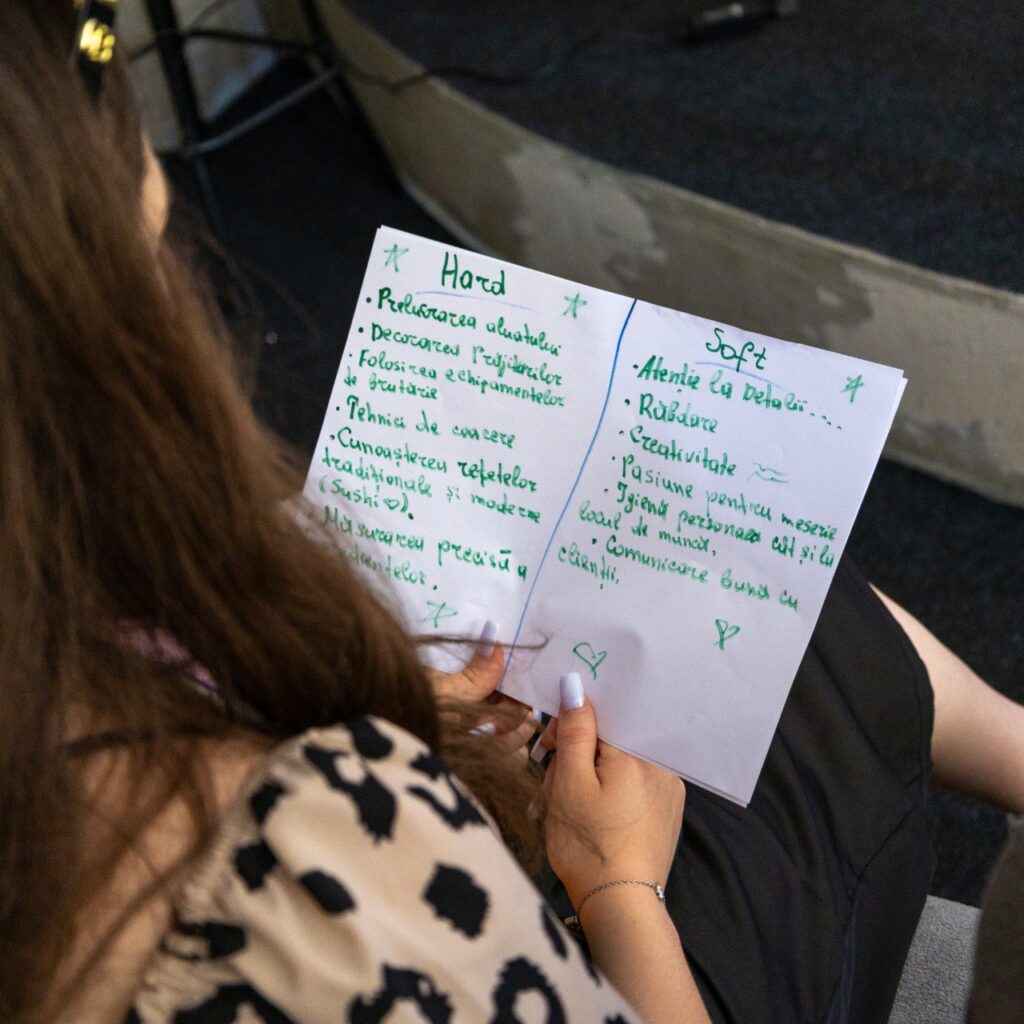 Hard
• Prelucrarea aluatului
• Decorarea Prăjiturilor
• Folosirea echipamentelor
de brutărie
• Tehnici de coacere
• Cunoașterea rețetelor
tradiționale și moderne
(Sushi ♡).
Măsurarea precisă a
Soft
• Atenție la Detalii....
• Răbdare
• Creativitate
• Pasiune pentru meserie
• Igienă personală cât și la
locul de muncă,
• Comunicare bună cu
clienții,